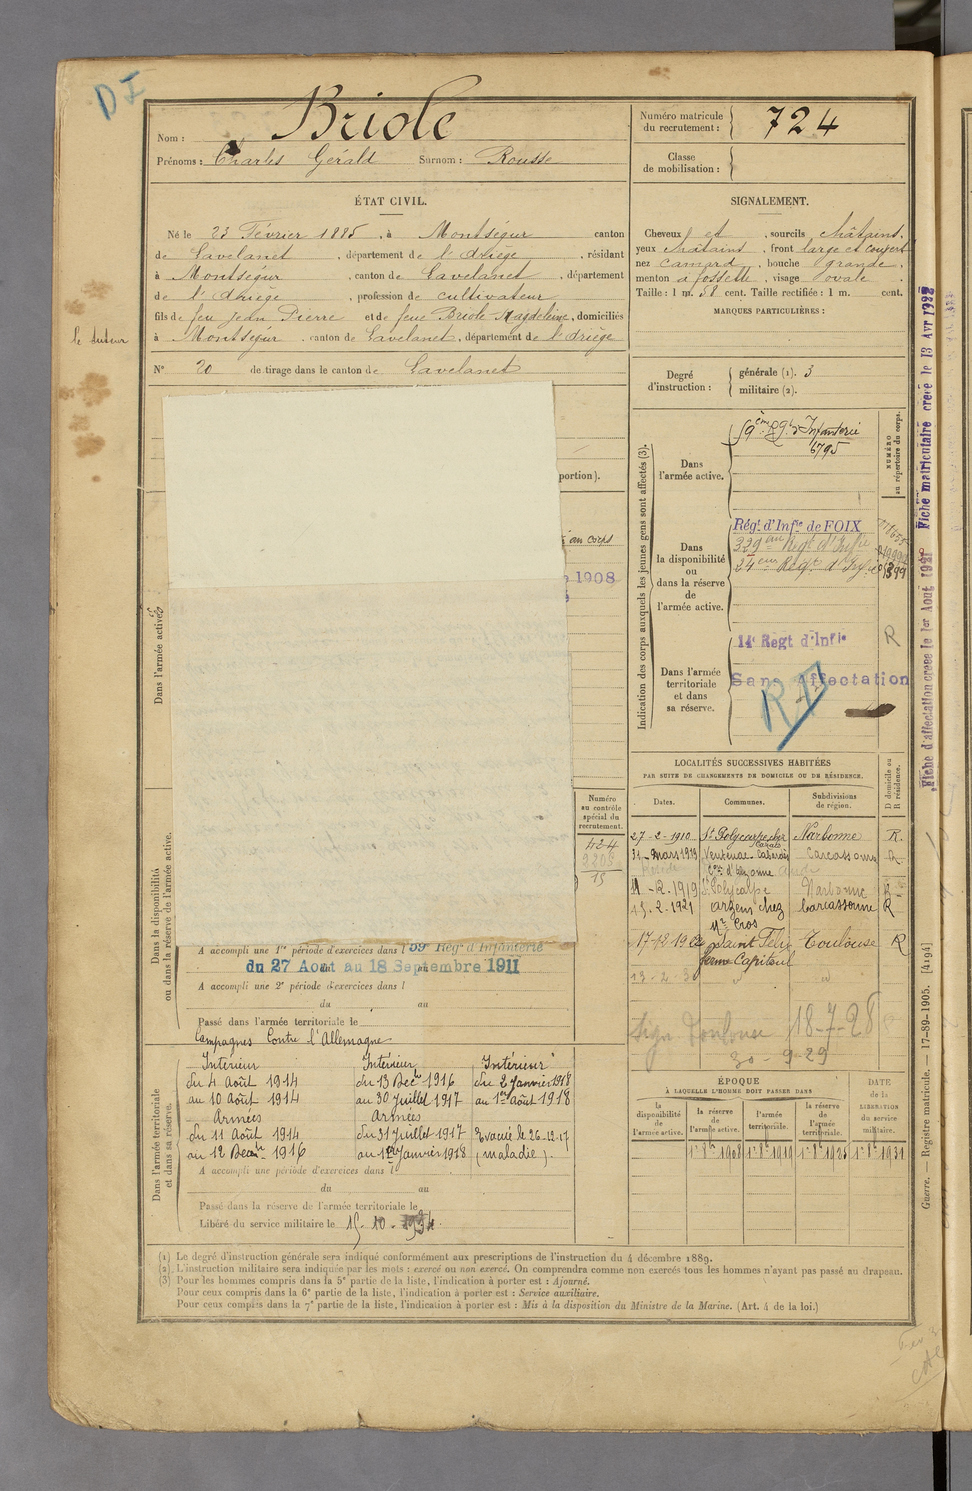 D I
Nom : Briole
Prénoms : Charles Gérald Surnom : Rousse
Numéro matricule du recrutement : 724
Classe de mobilisation :
ÉTAT CIVIL.
Né le 23 Février 1885, à Montségur canton
de Lavelanet, département de l'Ariège, résidant
à Montségur, canton de Lavelanet, département
de l'Ariège, profession de cultivateur
fils de feu Jean Pierre et de feue Briole Magdeleine, domiciliés
à Montségur, canton de Lavelanet, département de l'Ariège
le tuteur
N° 20 de tirage dans le canton de Lavelanet
SIGNALEMENT.
Cheveux et, sourcils châtains,
yeux châtains, front large et couvert
nez camard, bouche grande,
menton à fossette, visage ovale.
Taille : 1 m. 58 cent. Taille rectifiée : 1 m. cent.
MARQUES PARTICULIÈRES :
Degré d'instruction : générale (1). 3
militaire (2).
portion).
au corps
1908
Indication des corps auxquels les jeunes gens sont affectés (3).
NUMÉRO au répertoire du corps.
Dans l'armée active.
59ème Rgt d'Infanterie
6795
Dans la disponibilité ou dans la réserve de l'armée active.
Régt d'Infie de FOIX
339eme Regt d'Infie
24eme Regt d'Infie
Dans l'armée territoriale et dans sa réserve.
14e Regt d'Infie
R
Sans Affectation
Fiche d'affectation créée le 1er Aout 1921
Fiche matriculaire créée le 13 Avr 1922
Dans l'armée active.
Dans la disponibilité ou dans la réserve de l'armée active.
Dans l'armée territoriale et dans sa réserve.
Numéro au contrôle spécial du recrutement.
424
15
LOCALITÉS SUCCESSIVES HABITÉES
PAR SUITE DE CHANGEMENTS DE DOMICILE OU DE RÉSIDENCE.
D domicile ou R résidence.
Dates. Communes. Subdivisions de région.
27-2-1910 St Polycarpe Narbonne R.
31 Mars 1913 Ventenac-Cabardès Carcassonne R
11-2-1919 St Polycarpe Narbonne R
15-2-1921 Argens chez Mr Cros Carcassonne R
17-12-1922 Saint Félix ferme Capitoul Toulouse R
13-2-3
Toulouse 18-7-28
30-9-29
A accompli une 1re période d'exercices dans l 59 Régt d'Infanterie
du 27 Aout au 18 Septembre 1911
A accompli une 2e période d'exercices dans l
du au
Passé dans l'armée territoriale le
Campagnes Contre l'Allemagne
Intérieur Intérieur Intérieur
du 4 Août 1914 du 13 Decbre 1916 du 2 Janvier 1918
au 10 Août 1914 au 30 Juillet 1917 au 1er Août 1918
Armées Armées
du 11 Août 1914 du 31 Juillet 1917 Evacué le 26-12-17
au 12 Decbre 1916 au 1er Janvier 1918 (maladie).
A accompli une période d'exercices dans l
du au
Passé dans la réserve de l'armée territoriale le
Libéré du service militaire le 15-10-1934.
ÉPOQUE
À LAQUELLE L'HOMME DOIT PASSER DANS
DATE de la LIBÉRATION du service militaire.
la disponibilité de l'armée active. la réserve de l'armée active. l'armée territoriale. la réserve de l'armée territoriale.
1er 8bre 1908 1er 8bre 1919 1er 8bre 1925 1er 8bre 1931
(1) Le degré d'instruction générale sera indiqué conformément aux prescriptions de l'instruction du 4 décembre 1889.
(2) L'instruction militaire sera indiquée par les mots : exercé ou non exercé. On comprendra comme non exercés tous les hommes n'ayant pas passé au drapeau.
(3) Pour les hommes compris dans la 5e partie de la liste, l'indication à porter est : Ajourné.
Pour ceux compris dans la 6e partie de la liste, l'indication à porter est : Service auxiliaire.
Pour ceux compris dans la 7e partie de la liste, l'indication à porter est : Mis à la disposition du Ministre de la Marine. (Art. 4 de la loi.)
Guerre. — Registre matricule. — 17-89-1905. [4194]